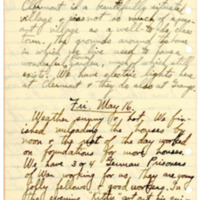 Clermont is a beautifully situated
village & is not so much of a peas-
ant village as a well-to-do class
town. The grounds around
in which
wonderful garden, most of which still
exists. We have electric lights here
at Clermont & they do also at Frangs.
Fri. May 16.
Weather sunny & hot. We fin-
ished the houses by
noon & the rest of the day worked
on foundations for more houses.
We have 3 or 4 German Prisoners
of War working for us, they are very
jolly fellows & good workers. In
that evening